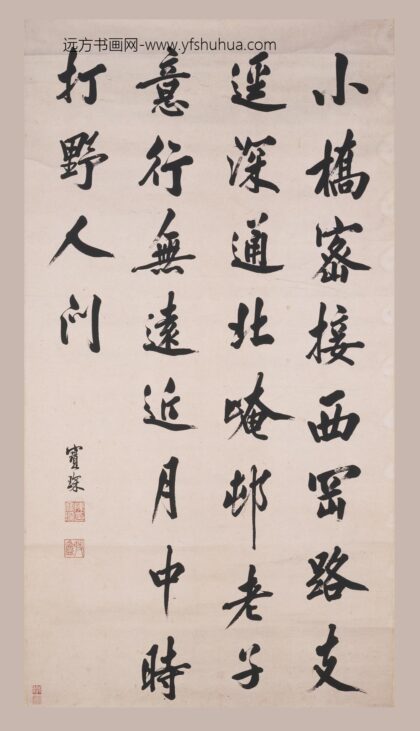 远方书画网-www.yfshuhua.com
小橋密接西岡路支
逕深通北崦邨老子
意行無遠近月中時
打野人門
寶琛